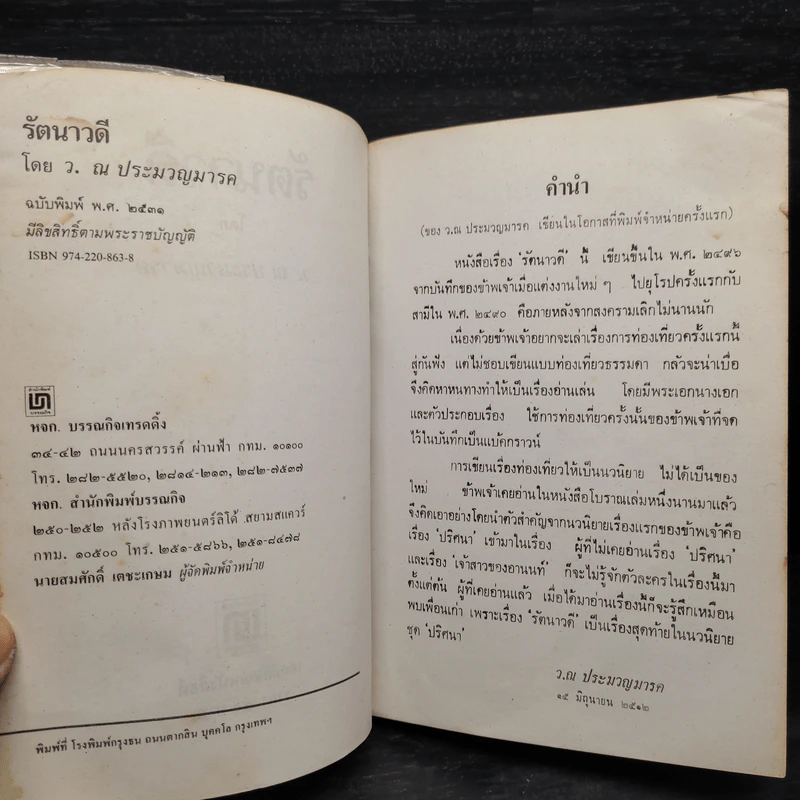 รัตนาวดี
โดย ว. ณ ประมวญมารค
ฉบับพิมพ์ พ.ศ. ๒๕๓๑
มีลิขสิทธิ์ตามพระราชบัญญัติ
ISBN 974-220-863-8
สำนักพิมพ์
บรรณกิจ
หจก. บรรณกิจเทรดดิ้ง
๓๔-๔๒ ถนนนครสวรรค์ ผ่านฟ้า กทม. ๑๐๑๐๐
โทร. ๒๘๒-๕๕๒๐, ๒๘๑๔-๒๑๓, ๒๘๒-๗๕๓๗
หจก. สำนักพิมพ์บรรณกิจ
๒๕๐-๒๕๒ หลังโรงภาพยนตร์ลิโด้ สยามสแควร์
กทม. ๑๐๕๐๐ โทร. ๒๕๑-๕๘๖๖, ๒๕๑-๘๔๗๘
นายสมศักดิ์ เตชะเกษม ผู้จัดพิมพ์จำหน่าย
พิมพ์ที่ โรงพิมพ์กรุงธน ถนนตากสิน บุคคโล กรุงเทพฯ
คำนำ
(ของ ว.ณ ประมวญมารค เขียนในโอกาสที่พิมพ์จำหน่ายครั้งแรก)
หนังสือเรื่อง 'รัตนาวดี' นี้ เขียนขึ้นใน พ.ศ. ๒๔๙๖
จากบันทึกของข้าพเจ้าเมื่อแต่งงานใหม่ ๆ ไปยุโรปครั้งแรกกับ
สามีใน พ.ศ. ๒๔๙๐ คือภายหลังจากสงครามเลิกไม่นานนัก
เนื่องด้วยข้าพเจ้าอยากจะเล่าเรื่องการท่องเที่ยวครั้งแรกนี้
สู่กันฟัง แต่ไม่ชอบเขียนแบบท่องเที่ยวธรรมดา กลัวจะน่าเบื่อ
จึงคิดหาหนทางทำให้เป็นเรื่องอ่านเล่น โดยมีพระเอกนางเอก
และตัวประกอบเรื่อง ใช้การท่องเที่ยวครั้งนั้นของข้าพเจ้าที่จด
ไว้ในบันทึกเป็นแบ้คกราวน์
การเขียนเรื่องท่องเที่ยวให้เป็นนวนิยาย ไม่ได้เป็นของ
ใหม่ ข้าพเจ้าเคยอ่านในหนังสือโบราณเล่มหนึ่งนานมาแล้ว
จึงคิดเอาอย่างโดยนำตัวสำคัญจากนวนิยายเรื่องแรกของข้าพเจ้าคือ
เรื่อง 'ปริศนา' เข้ามาในเรื่อง ผู้ที่ไม่เคยอ่านเรื่อง 'ปริศนา'
และเรื่อง 'เจ้าสาวของอานนท์' ก็จะไม่รู้จักตัวละครในเรื่องนี้มา
ตั้งแต่ต้น ผู้ที่เคยอ่านแล้ว เมื่อได้มาอ่านเรื่องนี้ก็จะรู้สึกเหมือน
พบเพื่อนเก่า เพราะเรื่อง 'รัตนาวดี' เป็นเรื่องสุดท้ายในนวนิยาย
ชุด 'ปริศนา'
ว.ณ ประมวญมารค
๑๕ มิถุนายน ๒๕๑๒